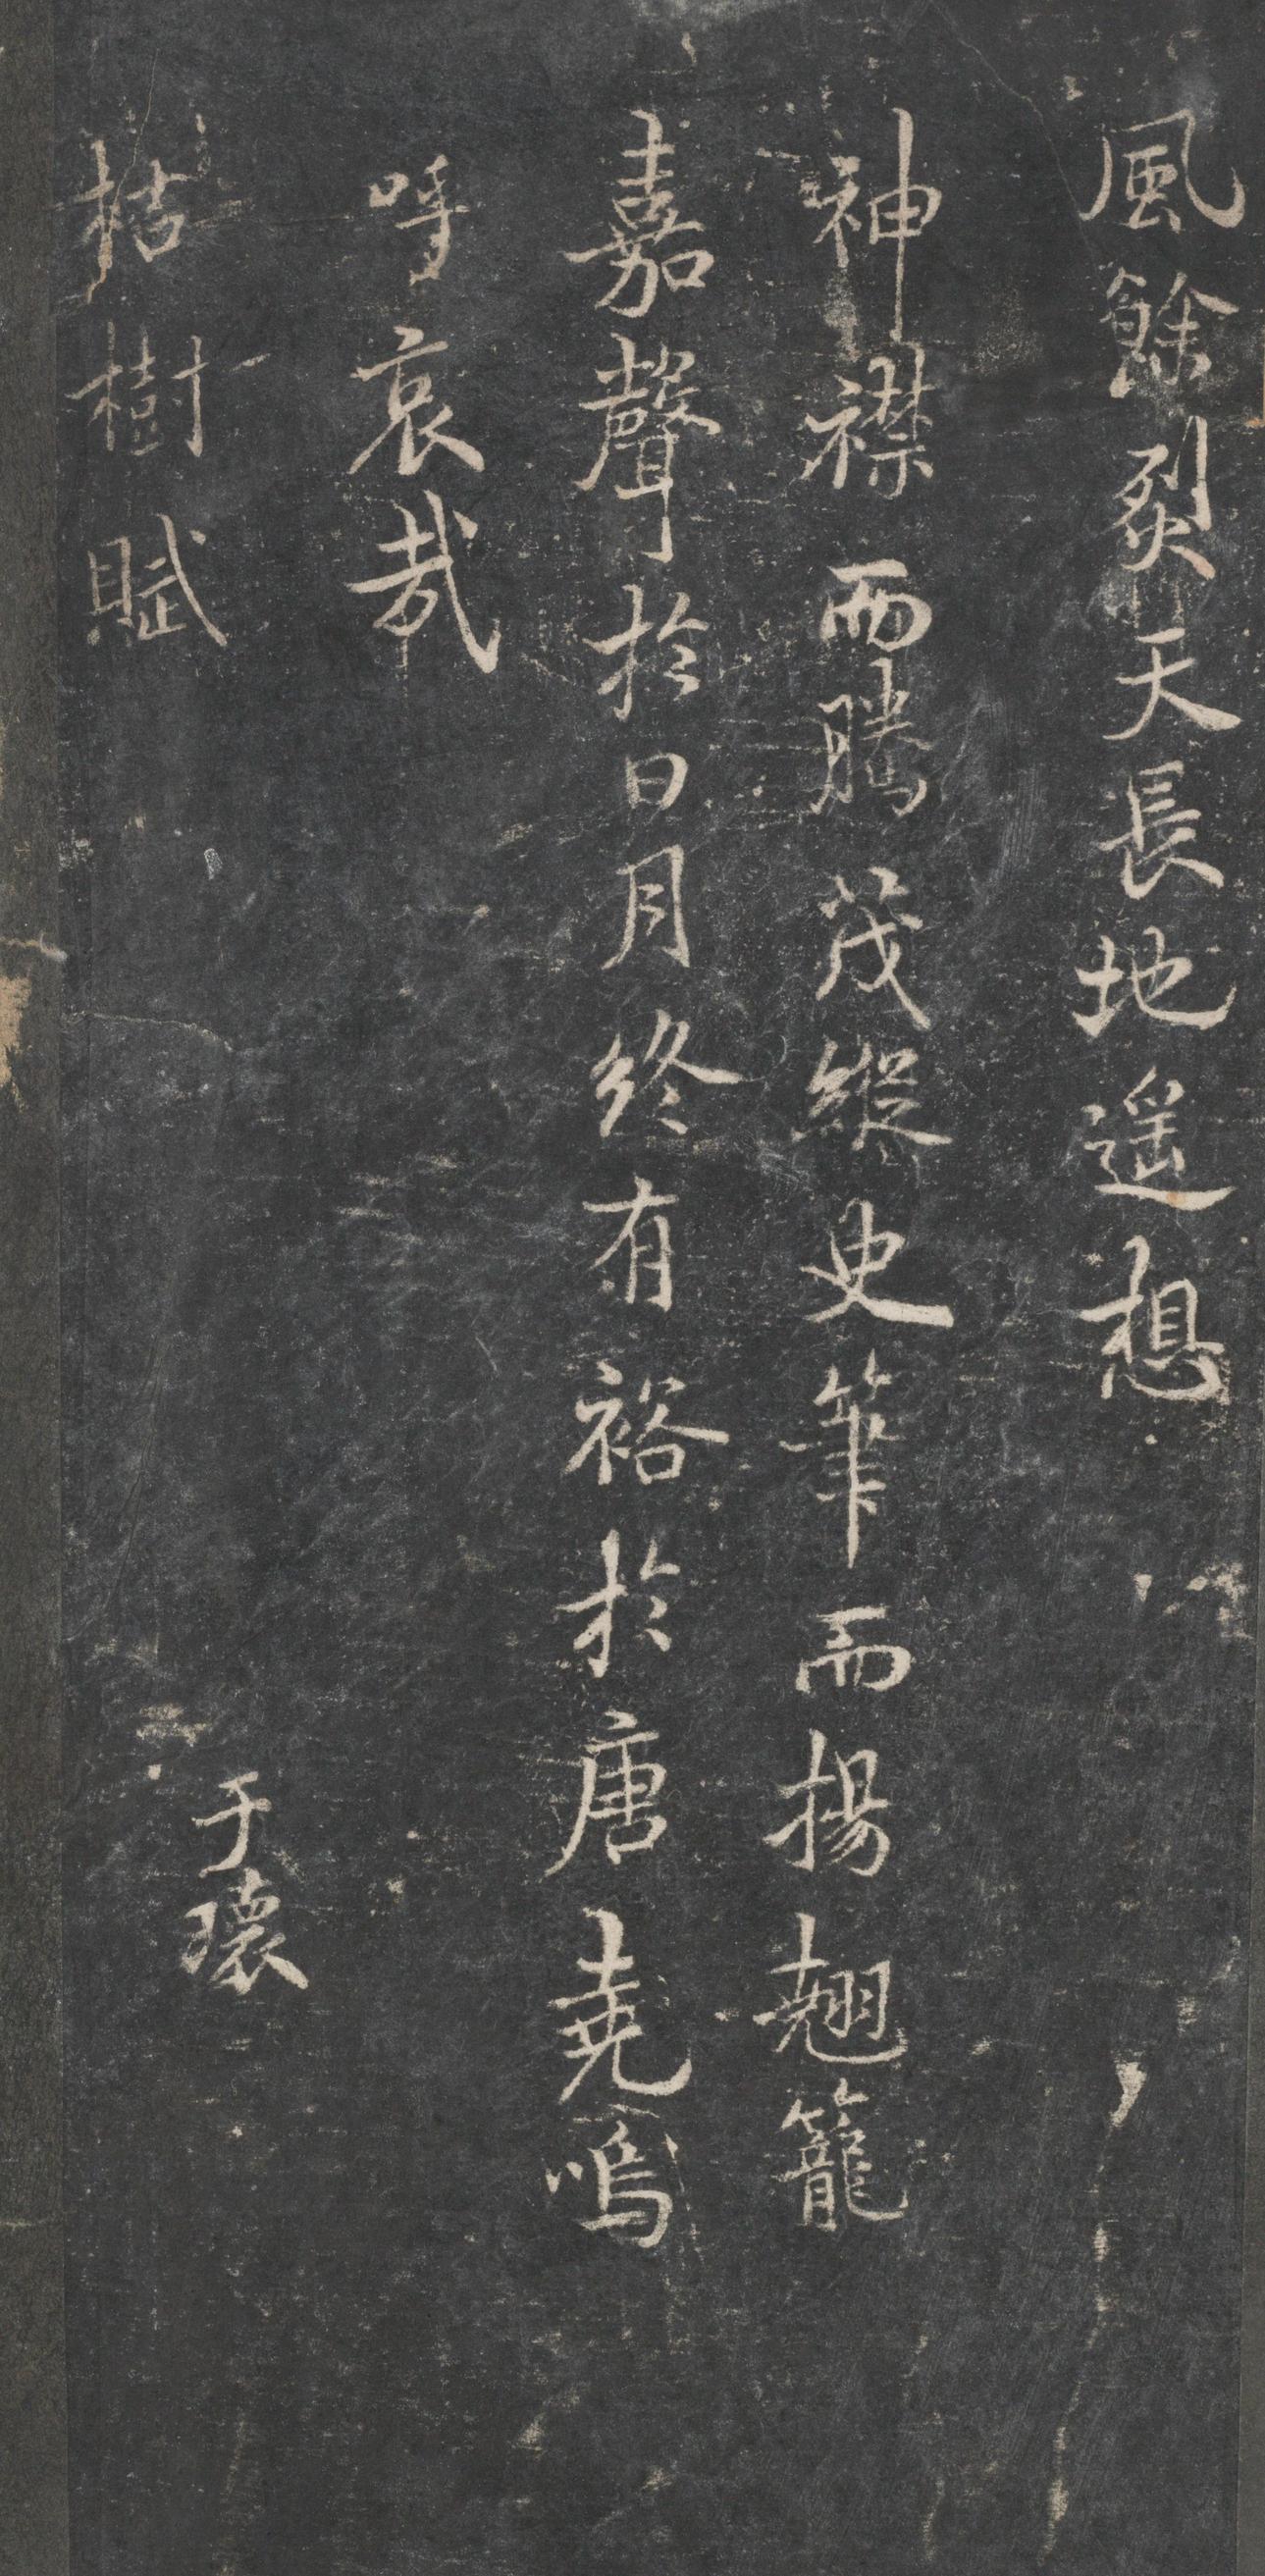 風餘烈天長地遥想
神襟而騰茂縱史筆而揚翹籠
嘉聲於日月終有裕於唐堯嗚
呼哀哉
于瓌
枯樹賦